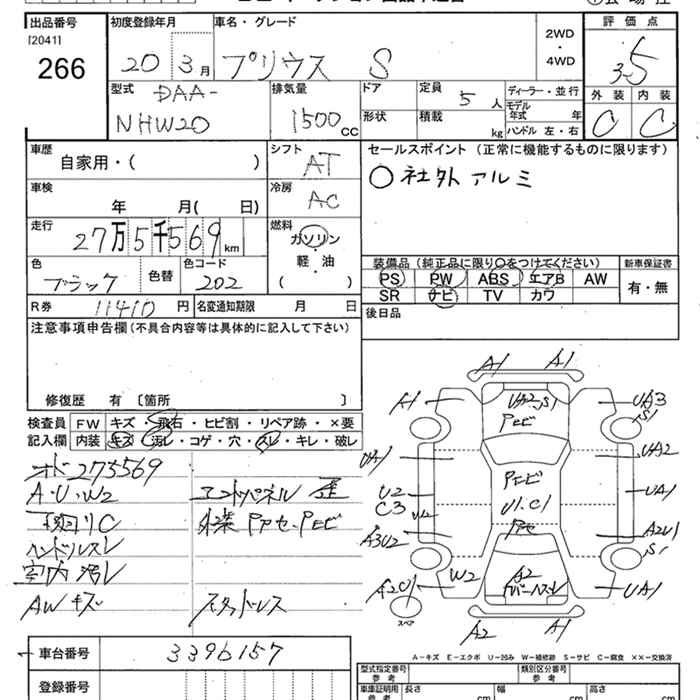 出品番号 初度登録年月 車名・グレード 評価点
[2041] 2WD
266 20 3月 プリウス S ・ 3.5
4WD
型式 DAA- 排気量 ドア 定員 5人 ディーラー・並行 外装 内装
NHW20 1500cc 形状 積載 kg モデル年式 年 C C
ハンドル 左・右
車歴 シフト セールスポイント (正常に機能するものに限ります)
自家用・( ) AT ○社外アルミ
車検 冷房
年 月( 日) AC
走行 燃料
27万5千569km ガソリン
・軽・油 装備品 (純正品に限り○をつけてください) 新車保証書
色 色替 色コード ( ) PS PW ABS エアB AW 有・無
ブラック 202 SR ナビ TV カワ
R券 11410円 名変通知期限 月 日 後日品
注意事項申告欄(不具合内容等は具体的に記入して下さい)
修復歴 有 〔箇所 〕
検査員 FW キズ・飛石・ヒビ割・リペア跡・×要
記入欄 内装 キズ・汚レ・コゲ・穴・スレ・キレ・破レ
オド275569
A・U・W2 エンドパネル 歪
下回りC 外装 Pアセ、Pヒビ
ハンドルスレ
室内汚レ
AWキズ スタッドレス
A1 A1
A1 UA2 S1 UA3
Pヒビ S1
UA1 UA2
U2 Pヒビ UA1
C3 U1.C1
A3U2 Pアセ A2U1
S1
A2C1 W2 A2 UA1
スペア A2 A1
A-キズ E-エクボ U-凹み W-補修跡 S-サビ C-腐食 ××-交換済
車台番号 3396157 型式指定番号 参考 類別区分番号 参考
登録番号 車庫証明用 参考 長さ cm 幅 cm 高さ cm